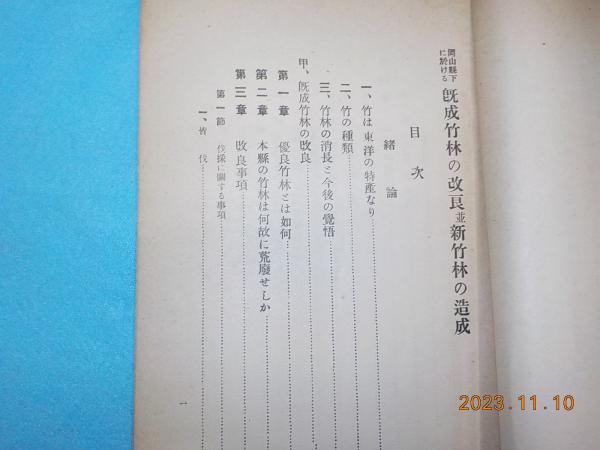 岡山縣下
に於ける 既成竹林の改良並新竹林の造成
目次
緒論
一、竹は東洋の特產なり
二、竹の種類
三、竹林の消長と今後の覺悟
甲、既成竹林の改良
第一章 優良竹林とは如何
第二章 本縣の竹林は何故に荒廢せしか
第三章 改良事項
第一節 伐採に關する事項
一、皆伐
一
2023.11.10